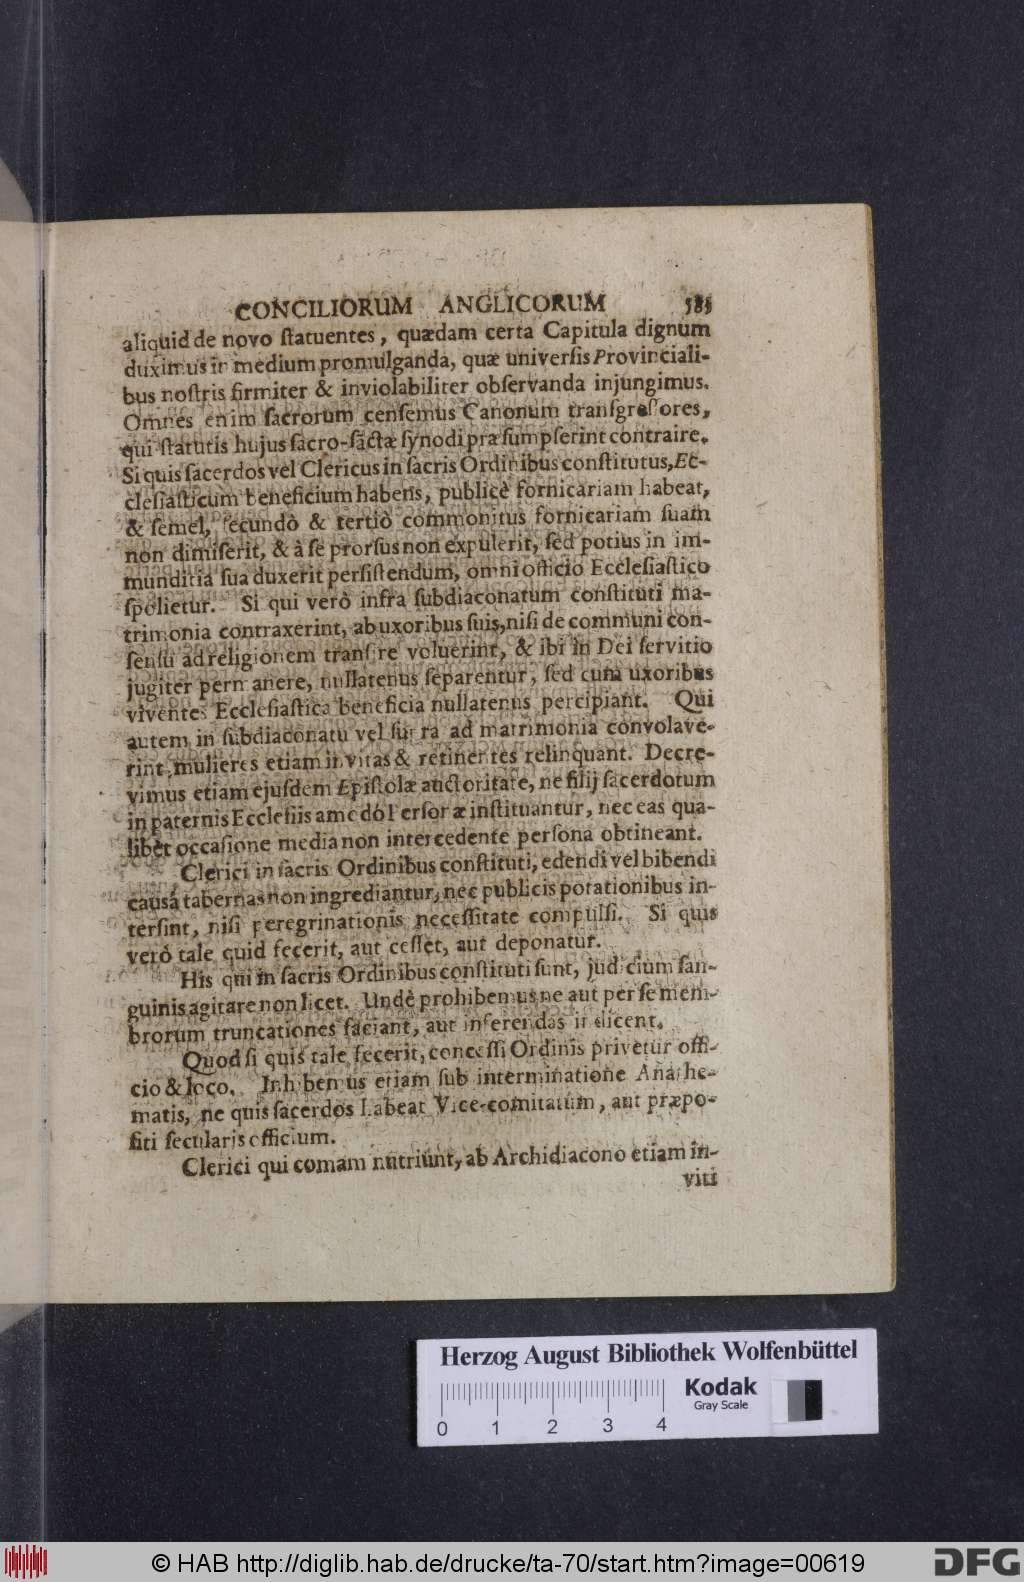 CONCILIORUM ANGLICORUM 585
aliquid de novo ſtatuentes, quædam certa Capitula dignum
duximus in medium promulganda, quæ univerſis Provinciali-
bus noſtris firmiter & inviolabiliter obſervanda injungimus.
Omnes enim ſacrorum cenſemus Canonum tranſgreſſores,
qui ſtatutis hujus ſacro-ſãctæ ſynodi præſumpſerint contraire.
Si quis ſacerdos vel Clericus in ſacris Ordinibus conſtitutus, Ec-
cleſiaſticum beneficium habens, publicè fornicariam habeat,
& ſemel, ſecundò & tertiò commonitus fornicariam ſuam
non dimiſerit, & à ſe prorſus non expulerit, ſed potius in im-
munditia ſua duxerit perſiſtendum, omni officio Eccleſiaſtico
ſpolietur. Si qui verò infra ſubdiaconatum conſtituti ma-
trimonia contraxerint, ab uxoribus ſuis, niſi de communi con-
ſenſu ad religionem tranſire voluerint, & ibi in Dei ſervitio
jugiter permanere, nullatenus ſeparentur, ſed cum uxoribus
viventes Eccleſiaſtica beneficia nullatenus percipiant. Qui
autem in ſubdiaconatu vel ſupra ad matrimonia convolave-
rint, mulieres etiam invitas & retinentes relinquant. Decre-
vimus etiam ejuſdem Epiſtolæ auctoritate, ne filij ſacerdotum
in paternis Eccleſiis amodó Perſonæ inſtituantur, nec eas qua-
libèt occaſione media non intercedente perſona obtineant.
Clerici in ſacris Ordinibus conſtituti, edendi vel bibendi
causâ tabernas non ingrediantur, nec publicis potationibus in-
terſint, niſi peregrinationis neceſſitate compulſi. Si quis
verò tale quid fecerit, aut ceſſet, aut deponatur.
His qui in ſacris Ordinibus conſtituti ſunt, judicium ſan-
guinis agitare non licet. Undè prohibemus ne aut per ſe mem-
brorum truncationes faciant, aut inferendas judicent.
Quod ſi quis tale fecerit, conceſſi Ordinis privetur offi-
cio & loco. Inhibemus etiam ſub interminatione Anathe-
matis, ne quis ſacerdos habeat Vice-comitatum, aut præpo-
ſiti ſecularis officium.
Clerici qui comam nutriunt, ab Archidiacono etiam in-
viti
Herzog August Bibliothek Wolfenbüttel
Kodak
Gray Scale
0 1 2 3 4
© HAB http://diglib.hab.de/drucke/ta-70/start.htm?image=00619
DFG